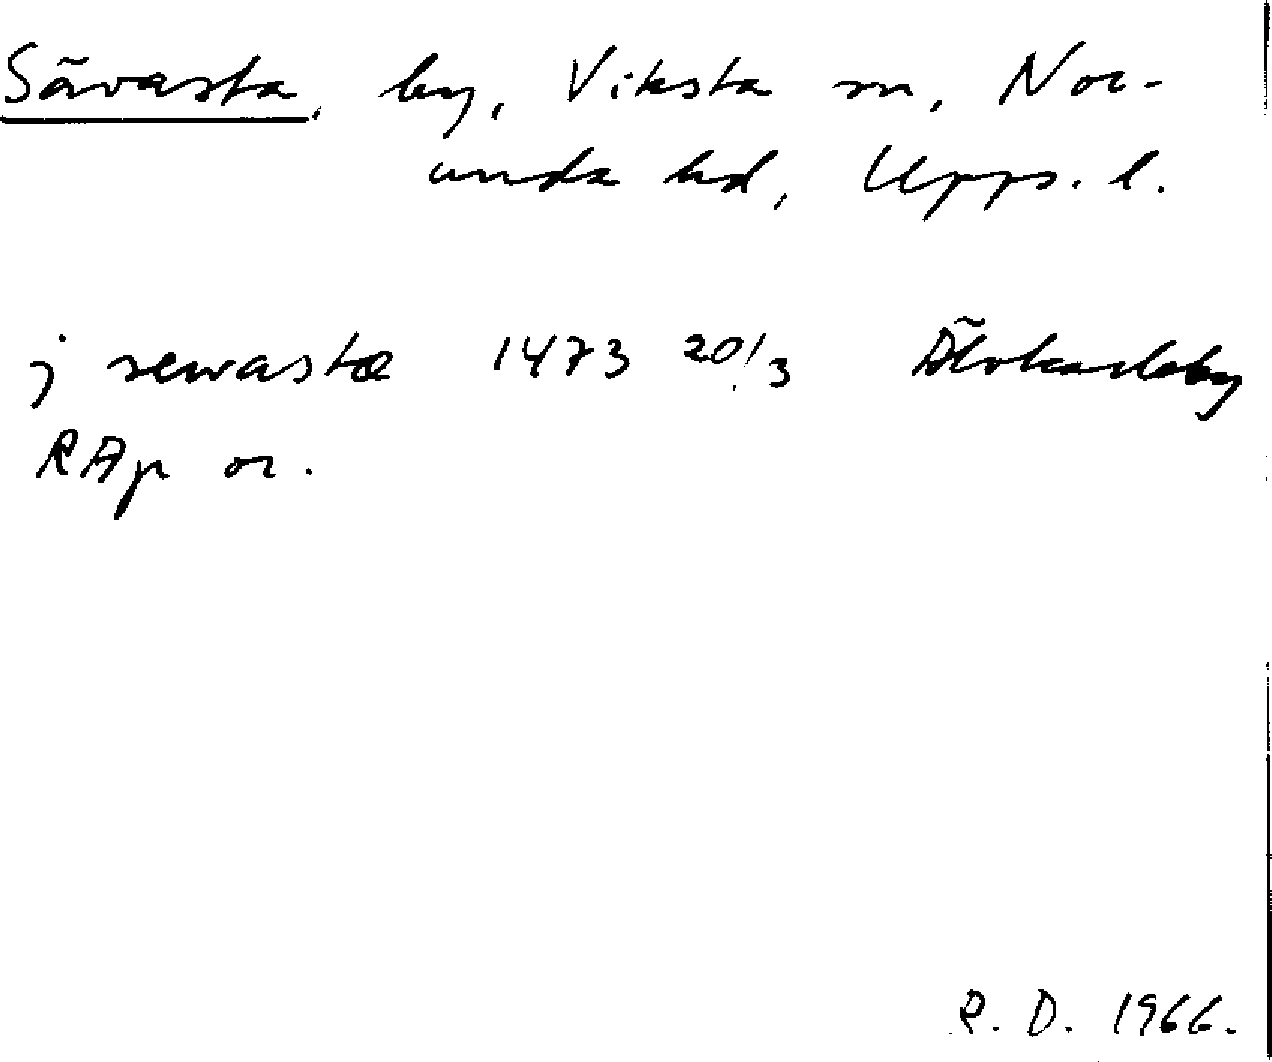 Sävasta, by, Viksta sn, Nor-
unda hd, Upps. l.
j sewastæ 1473 20/3 Älvkarleby
RAp or.
R. D. 1966.